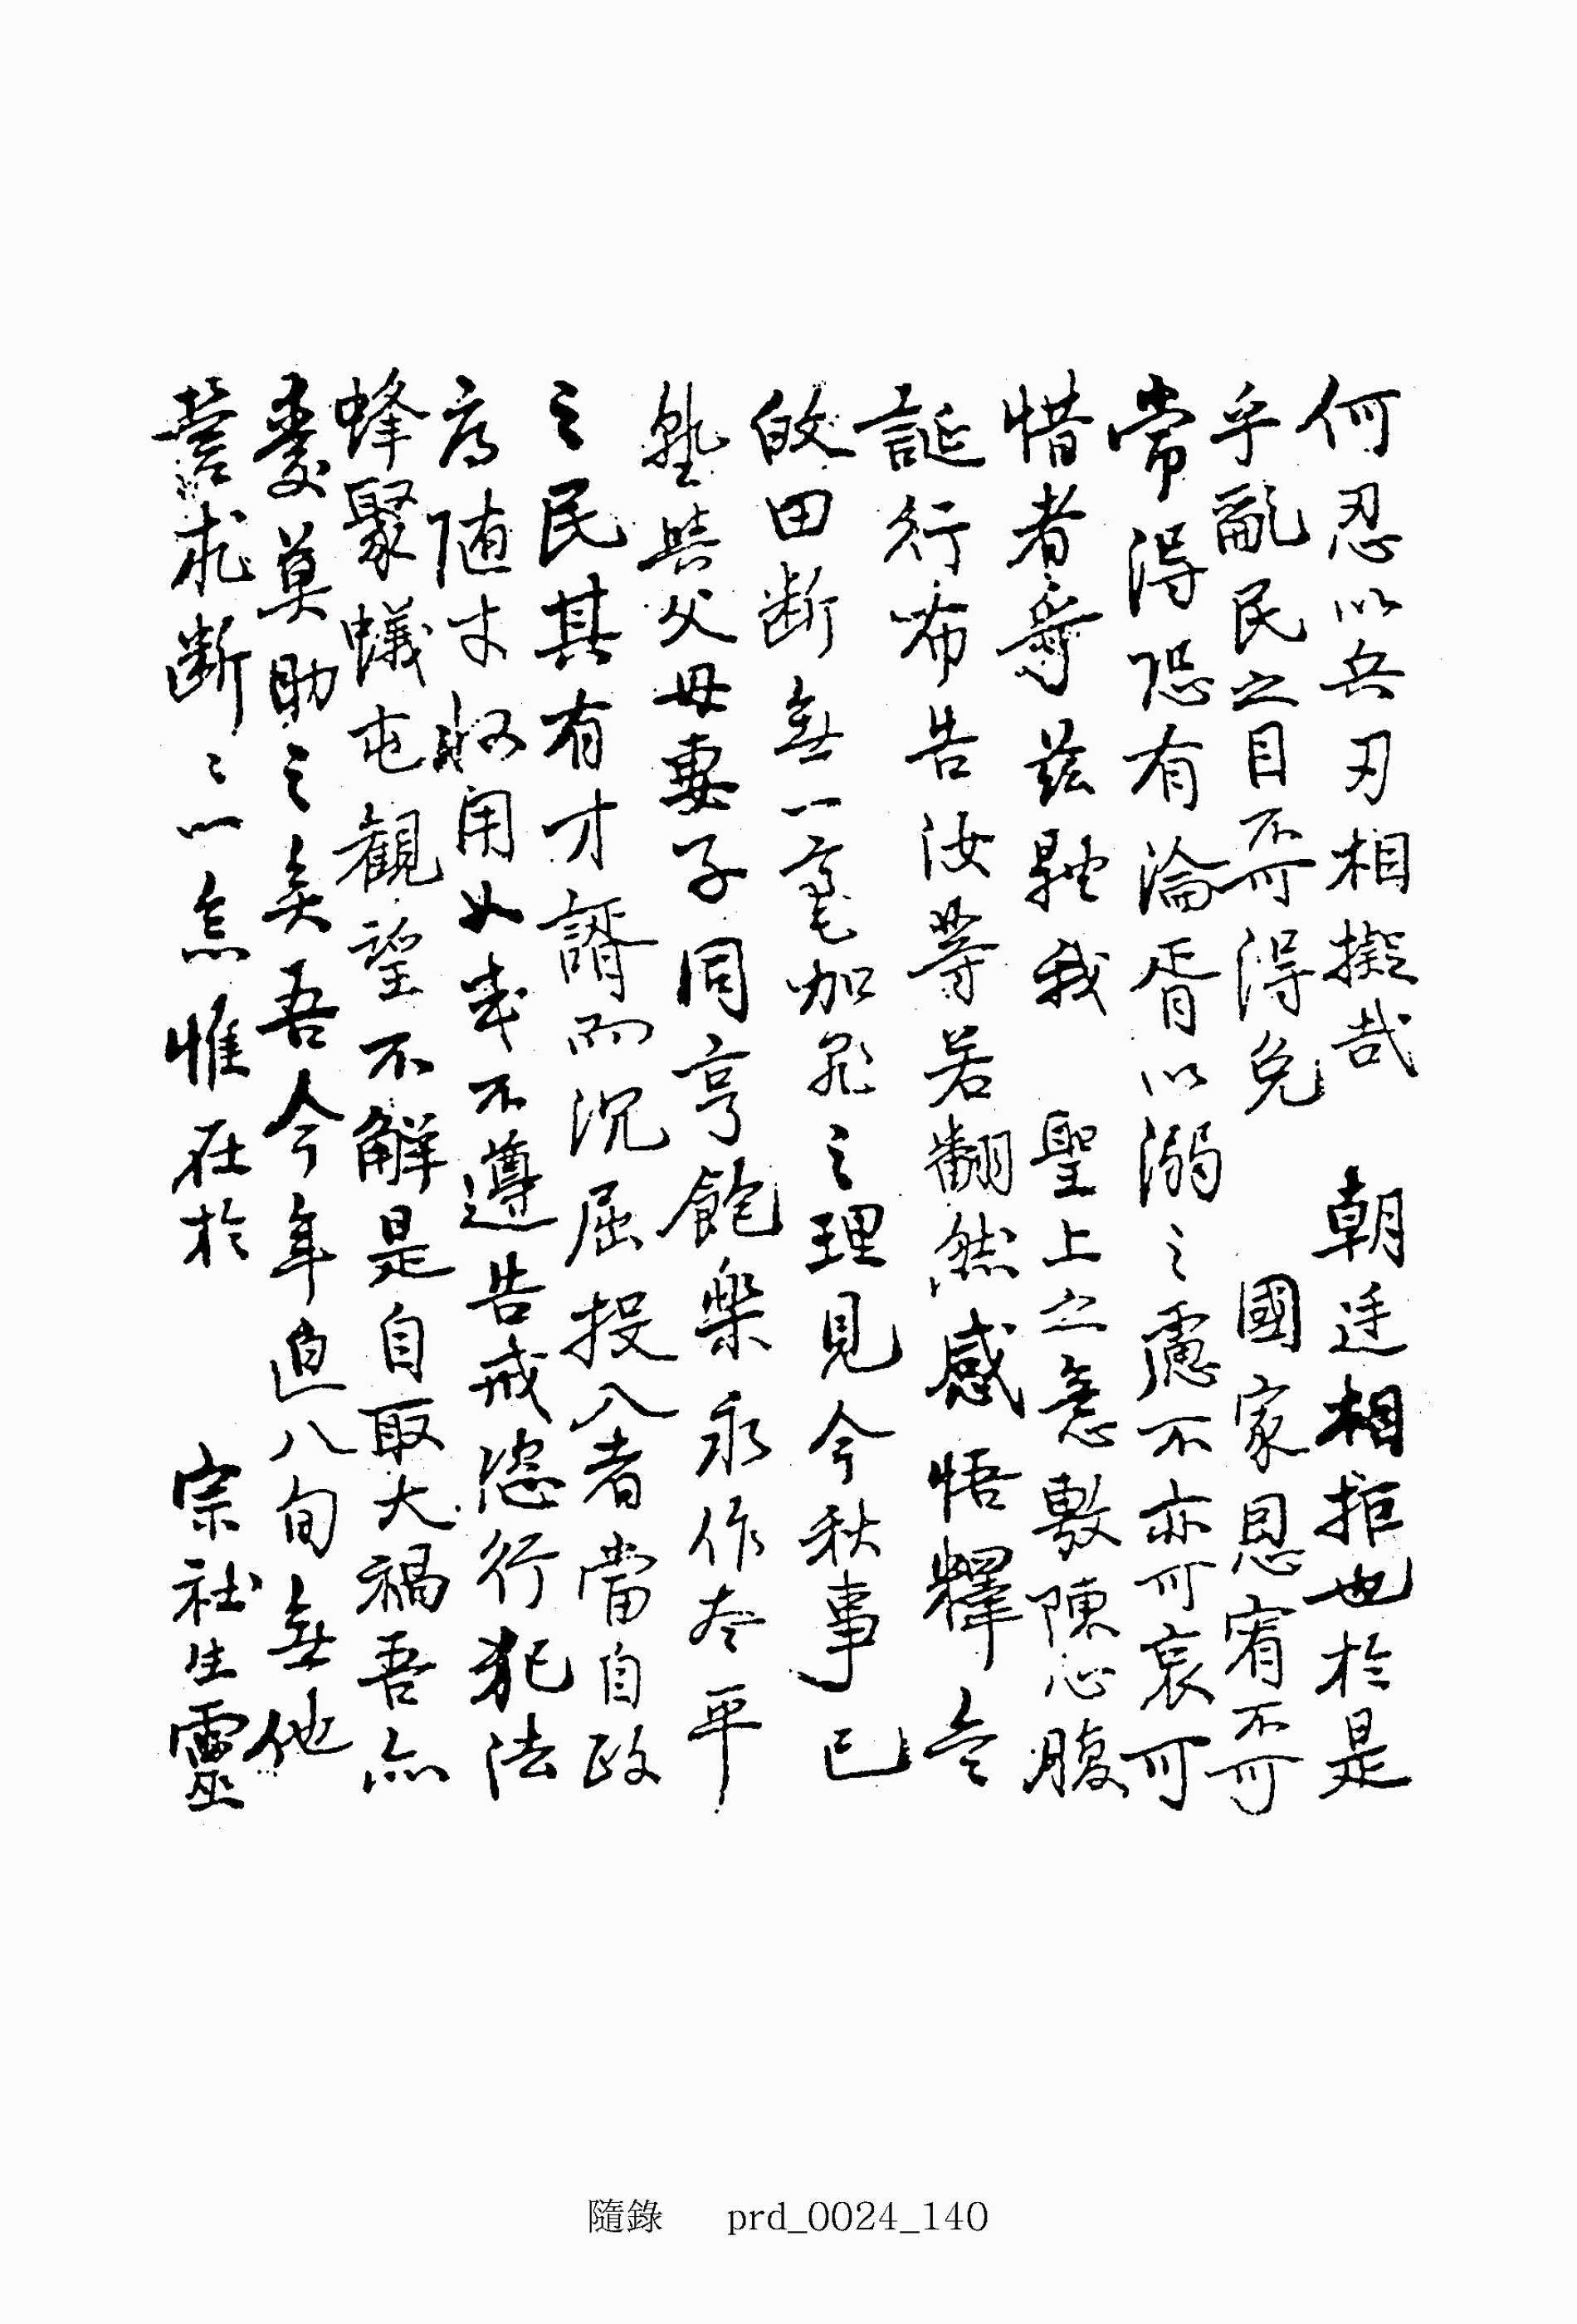 何忍以兵刃相擬哉 朝廷相拒也於是
乎亂民之目不可得免 國家恩宥不可
常得恐有淪胥以溺之慮不亦可哀可
惜者乎茲馳我 聖上之意敷陳心腹
誕行布告汝等若翻然感悟釋兵
放田斷無一毫加罪之理見今秋事已
熟與父母妻子同享飽樂永作太平
之民其有才諝而沉屈投入者當自政
府隨才收用如或不遵告戒恣行犯法
蜂聚蟻屯觀望不解是自取大禍吾亦
憂莫助之矣吾今年迫八旬無他
營求斷斷一念惟在於 宗社生靈
隨錄 prd_0024_140